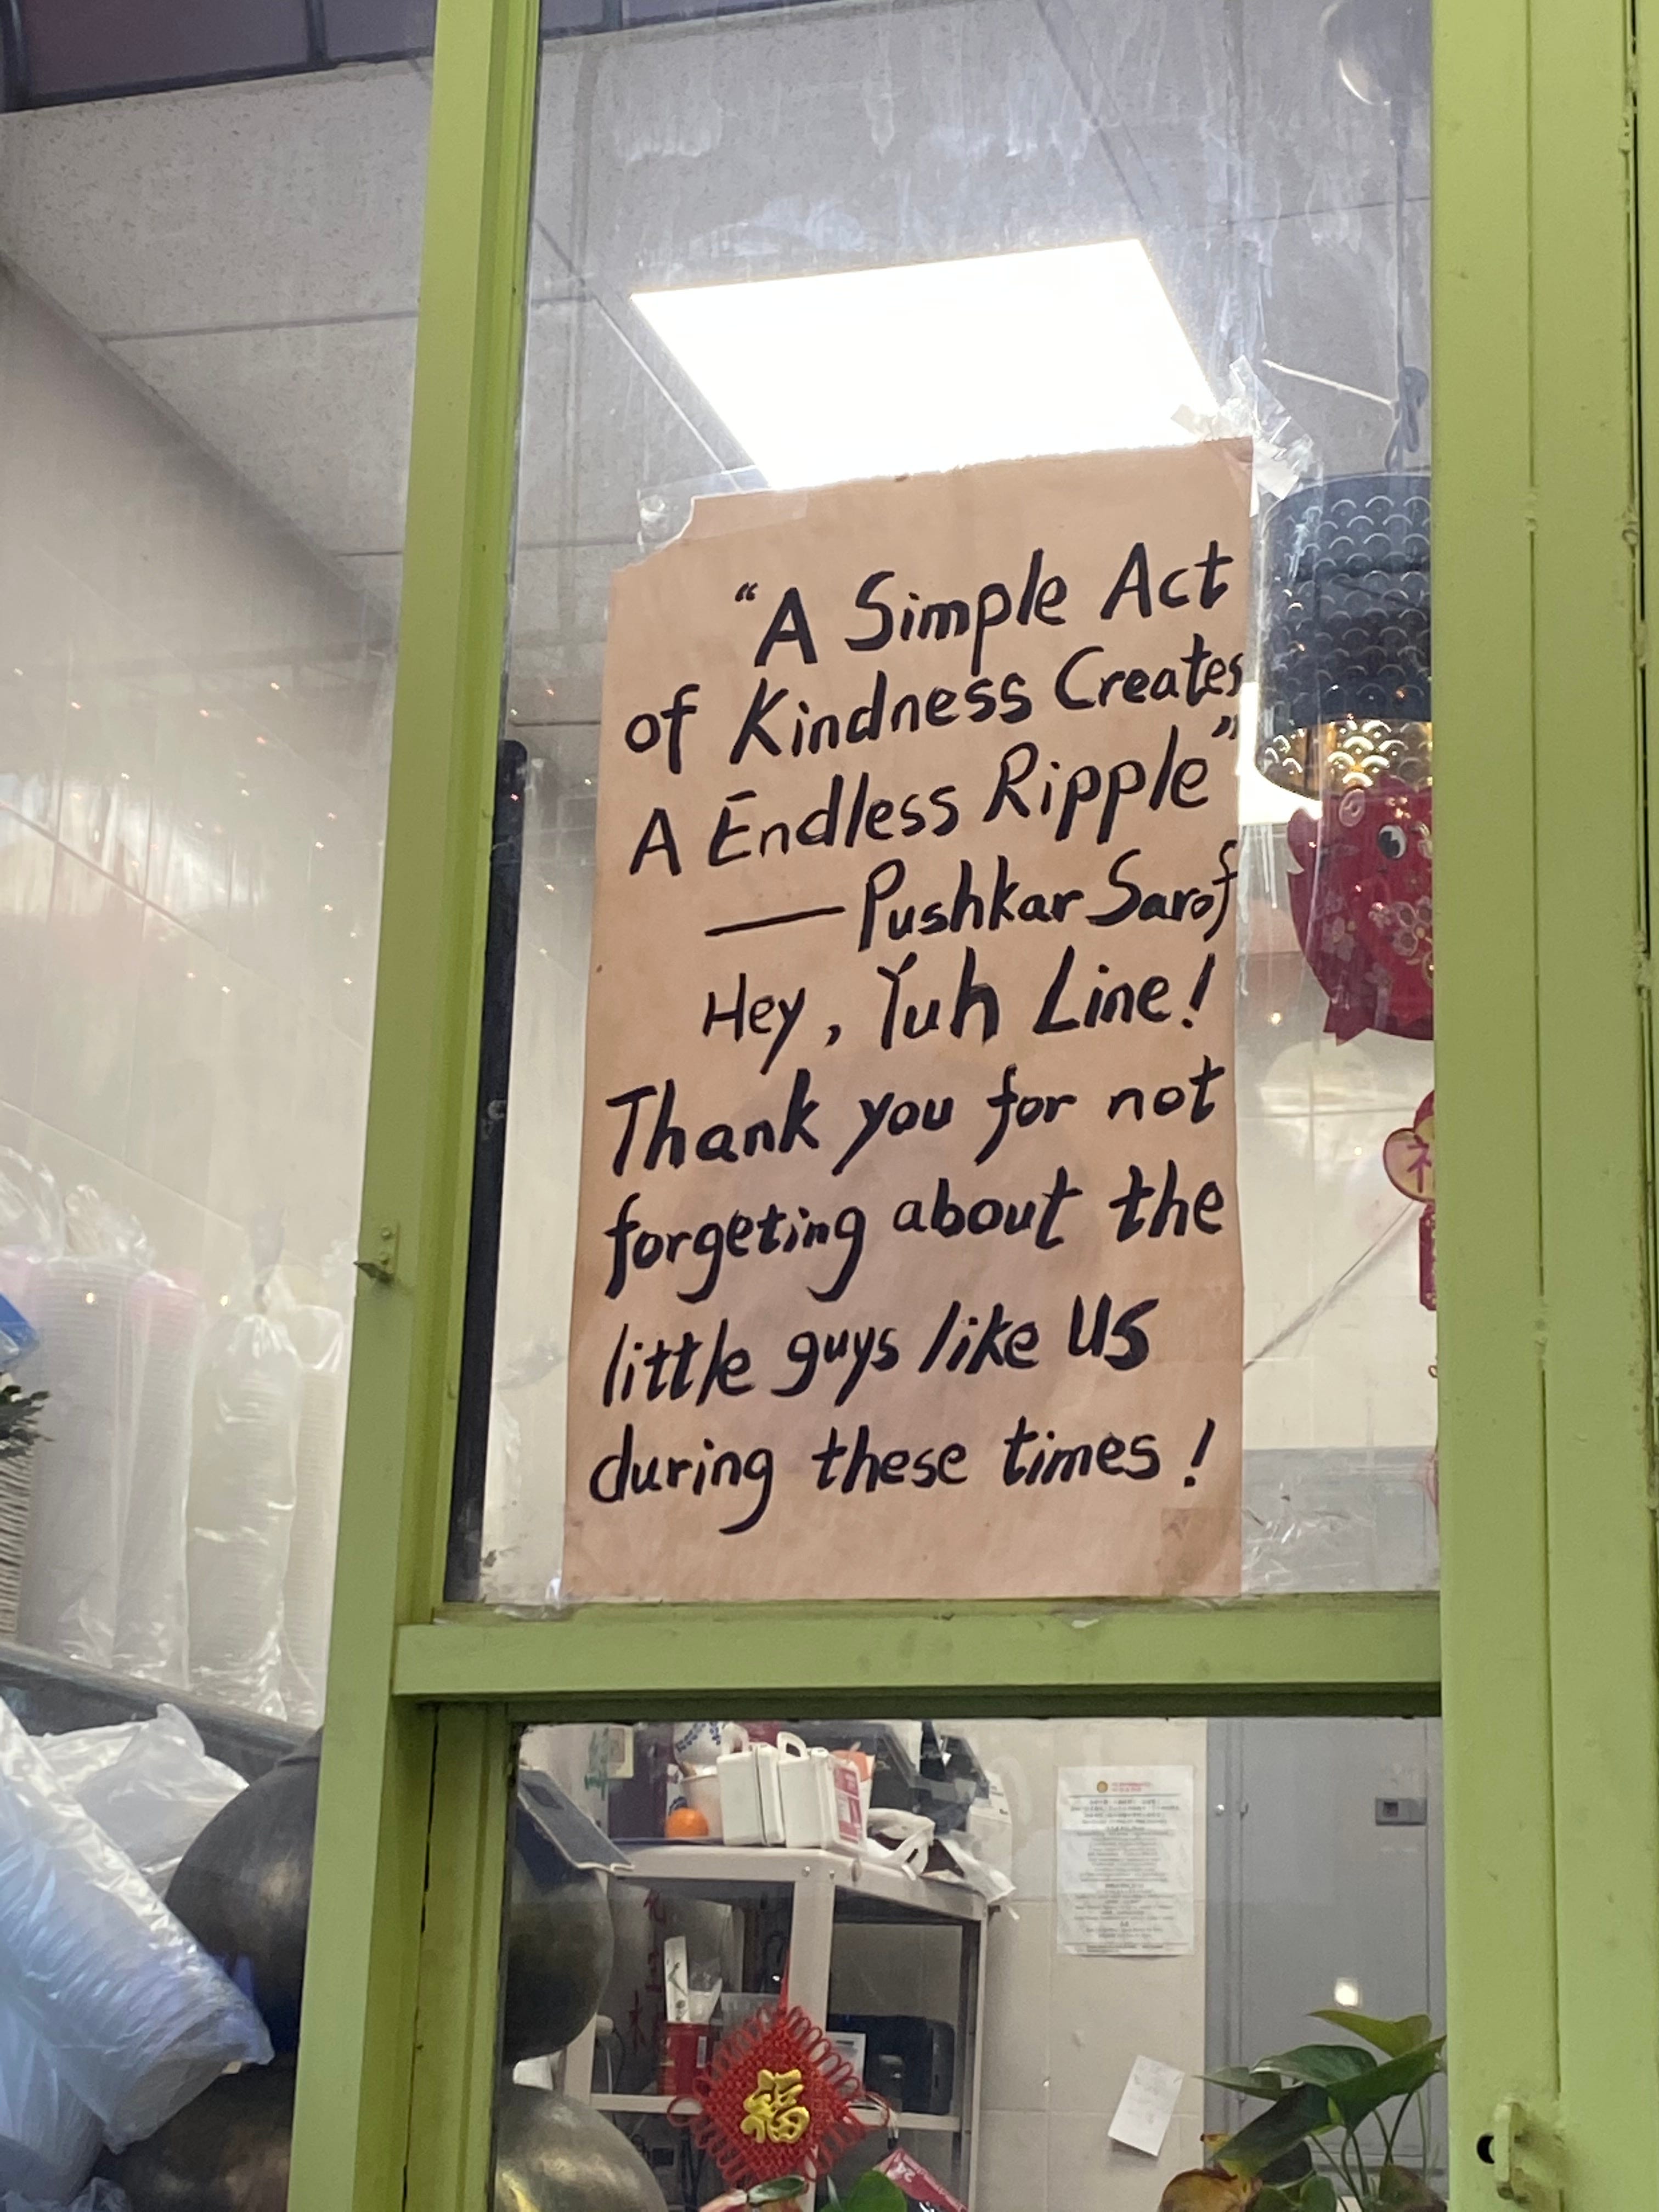 “A Simple Act
of Kindness Creates
A Endless Ripple”
— Pushkar Sarof
Hey, Yuh Line!
Thank you for not
forgeting about the
little guys like US
during these times!
福